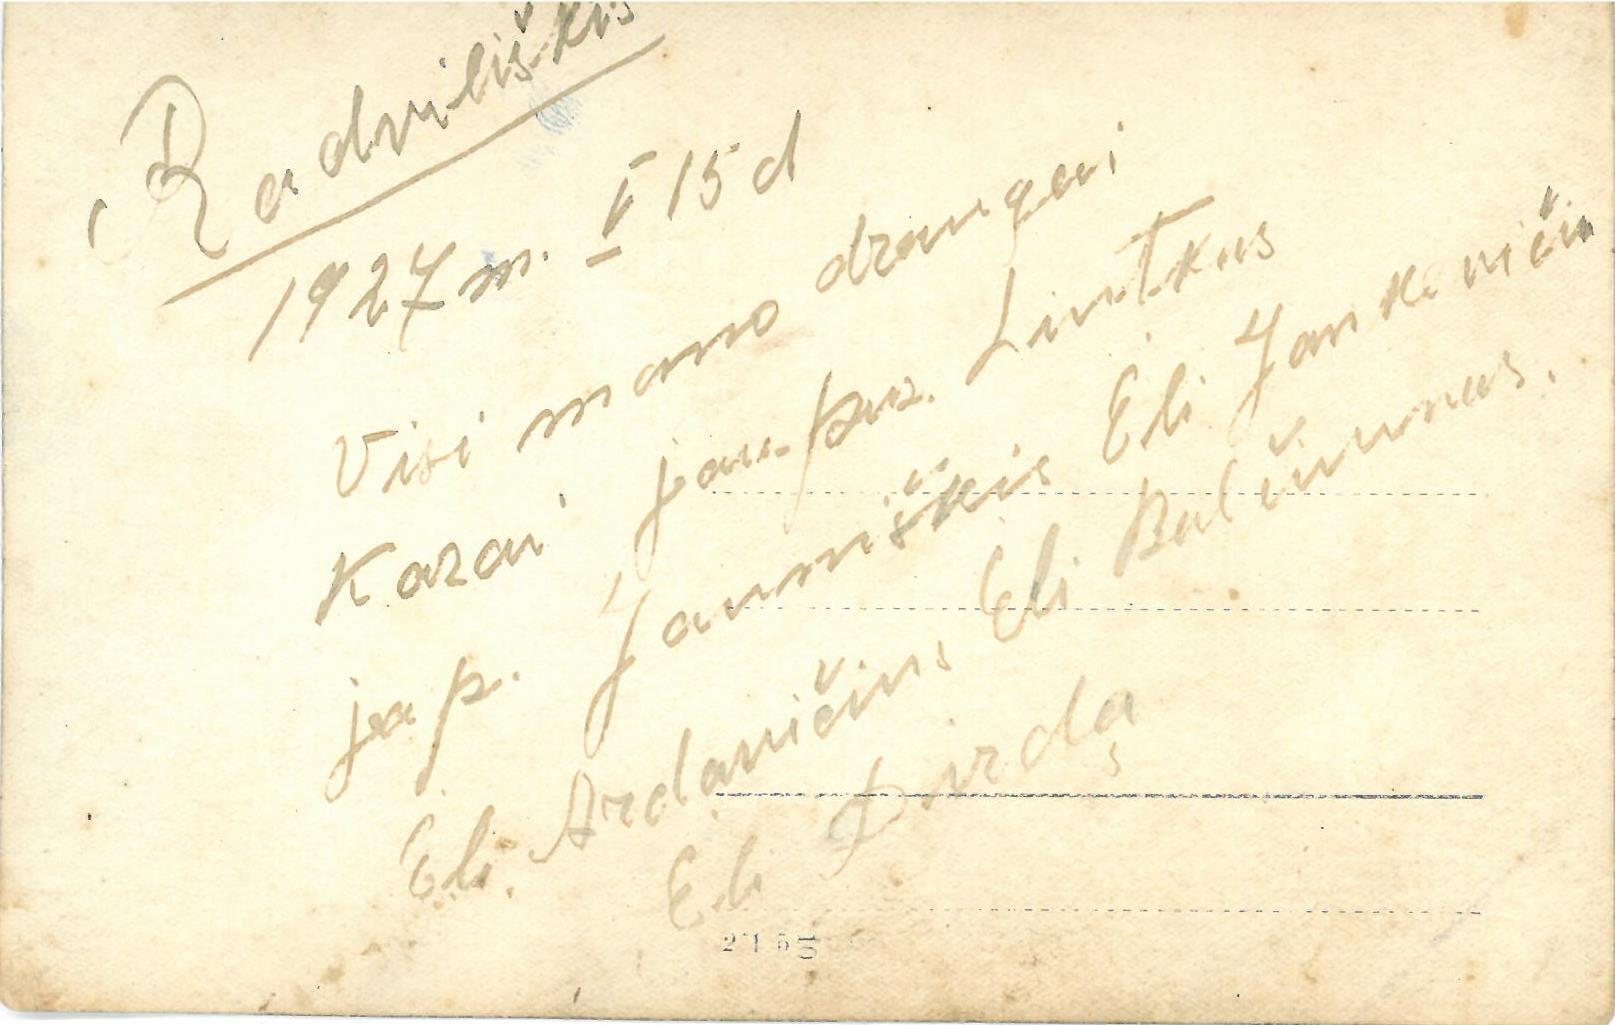 Radviliškis
1927 m. V 15 d
Visi mano draugai
Karai jau.  Liutkus
jap. Jauniškis Eli Jankevičiu
Eli. Ardavičius Eli Balčiunas.
Eli Dirda
215